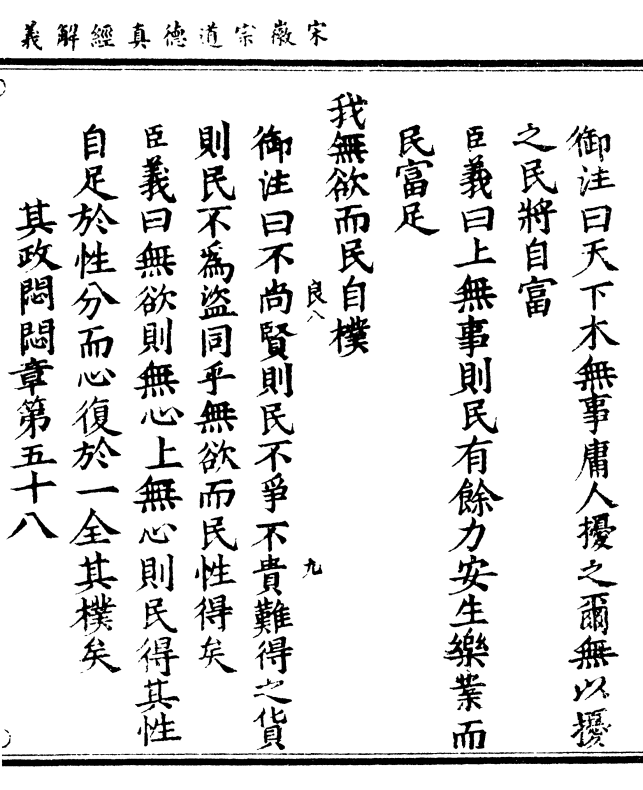 宋徽宗道德真經解義
御注曰天下本無事庸人擾之爾無以擾
之民將自富
臣義曰上無事則民有餘力安生樂業而
民富足
我無欲而民自樸
良八
九
御注曰不尚賢則民不爭不貴難得之貨
則民不為盜同乎無欲而民性得矣
臣義曰無欲則無心上無心則民得其性
自足於性分而心復於一全其樸矣
其政悶悶章第五十八